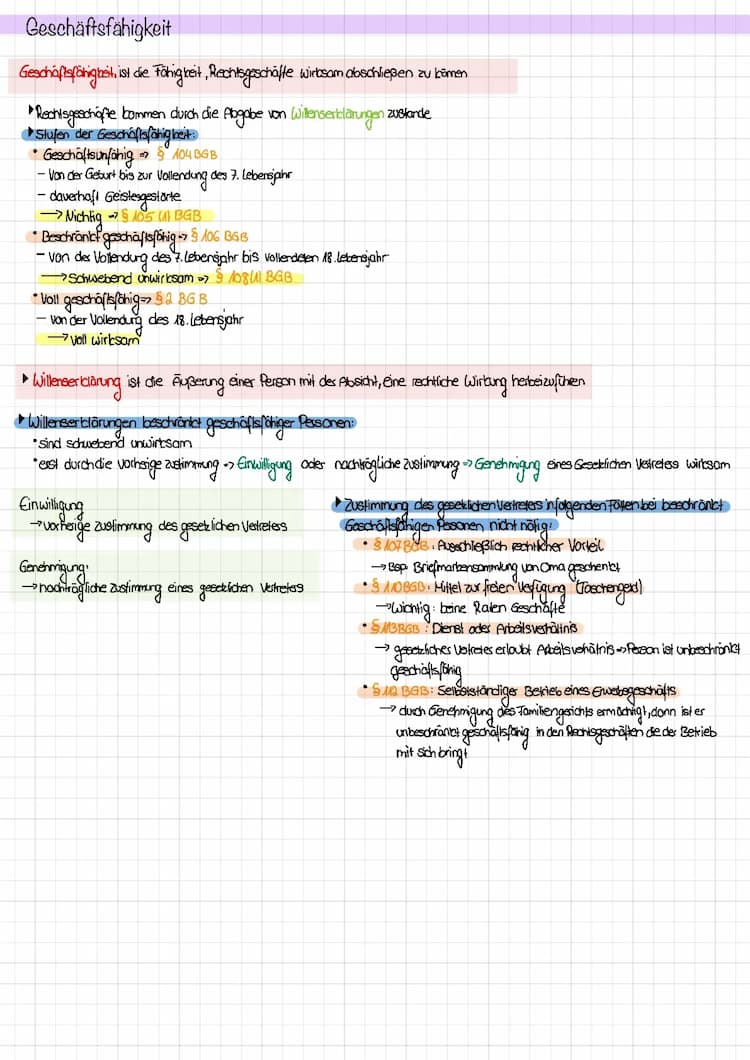 Geschäftsfähigkeit
Geschäftsfähigkeit, ist die Fähigkeit, Rechtsgeschäfte wirksam abschließen zu können
▸Rechtsgeschäfte kommen durch die Abgabe von Willenserklärungen zustande
▸Stufen der Geschäftsfähigkeit:
• Geschäftsunfähig => § 104 BGB
- Von der Geburt bis zur Vollendung des 7. Lebensjahr
- dauerhaft Geistesgestörte
→ Nichtig => § 105 (1) BGB
• Beschränkt geschäftsfähig => § 106 BGB
- Von der Vollendung des 7. Lebensjahr bis vollendeten 18. Lebensjahr
→ Schwebend unwirksam => § 108 (1) BGB
• Voll geschäftsfähig => § 2 BGB
- Von der Vollendung des 18. Lebensjahr
→ Voll wirksam
▸ Willenserklärung ist die Äußerung einer Person mit der Absicht, eine rechtliche Wirkung herbeizuführen
▸Willenserklärungen beschränkt geschäftsfähiger Personen:
• sind schwebend unwirksam
• erst durch die vorherige Zustimmung => Einwilligung oder nachträgliche Zustimmung => Genehmigung eines Gesetzlichen Vertreters wirksam
Einwilligung
→ vorherige Zustimmung des gesetzlichen Vertreters
Genehmigung:
→ nachträgliche Zustimmung eines gesetzlichen Vertreters
▸Zustimmung des gesetzlichen Vertreters in folgenden Fällen bei beschränkt
Geschäftsfähigen Personen nicht nötig:
• § 107 BGB: Ausschießlich rechtlicher Vorteil
→ Bsp: Briefmarkensammlung von Oma geschenkt
• § 110 BGB: Mittel zur freien Verfügung (Taschengeld)
→ Wichtig: keine Raten Geschäfte
• § 113 BGB: Dienst oder Arbeitsverhältnis
→ gesetzliches Vertreter erlaubt Arbeitsverhältnis => Person ist unbeschränkt
geschäftsfähig
• § 112 BGB: Selbstständiger Betrieb eines Erwerbsgeschäfts
→ durch Genehmigung des Familiengerichts ermächtigt, dann ist er
unbeschränkt geschäftsfähig in den Rechtsgeschäften die der Betrieb
mit sich bringt